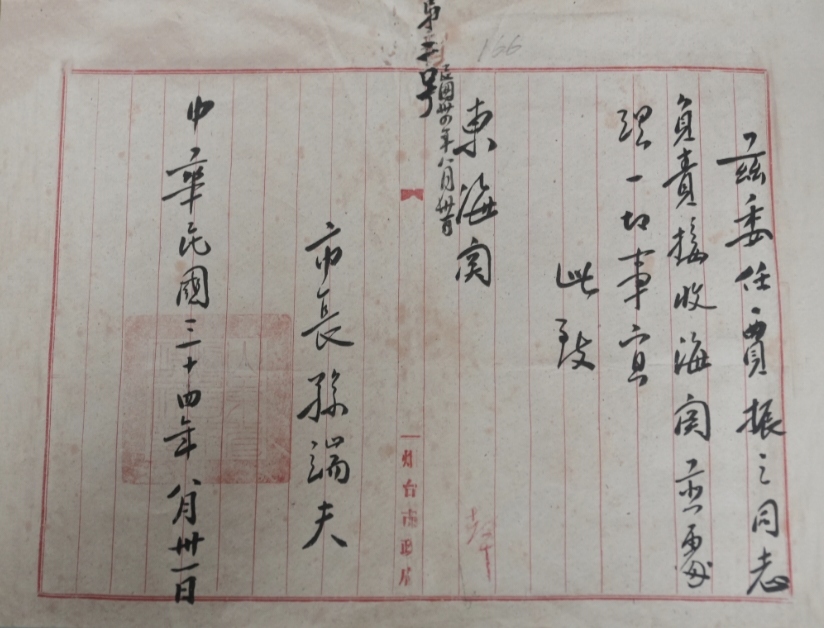 茲委任賈振之同志
負責接收海関並處
理一切事宜
此致
東海関
市長孫端夫
中華民國三十四年八月卅一日
第二號
166
烟台市政府